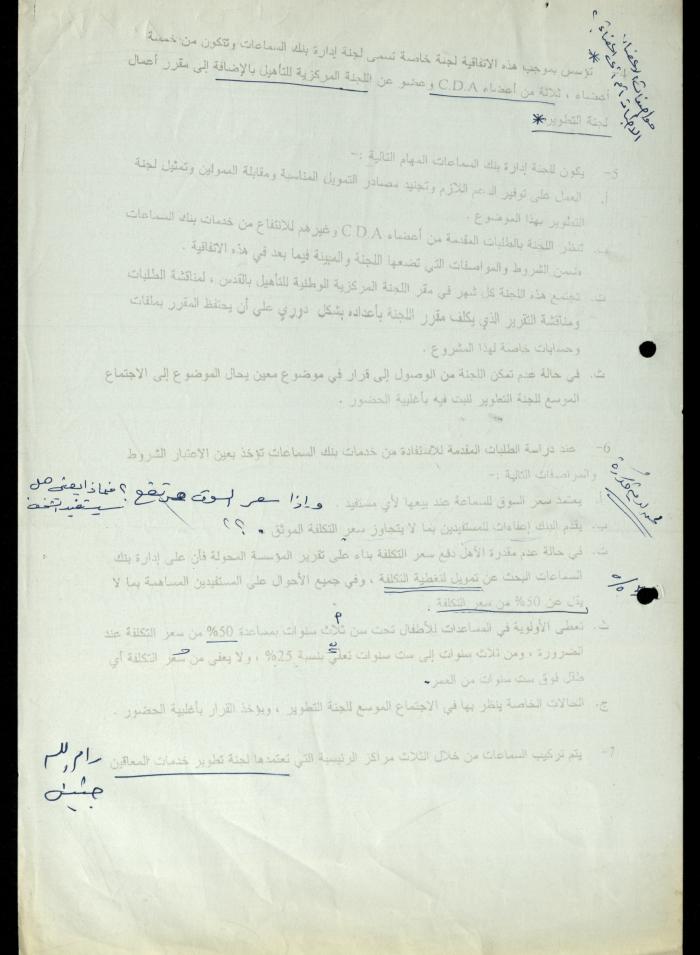 تؤسس بموجب هذه الاتفاقية لجنة خاصة تسمى لجنة إدارة بنك السماعات وتتكون من خمسة
أعضاء ، ثلاثة من أعضاء C.D.A وعضو عن اللجنة المركزية للتأهيل بالإضافة إلى مقرر أعمال
لجنة التطوير *
5- يكون للجنة إدارة بنك السماعات المهام التالية :-
أ. العمل على توفير الدعم اللازم وتجنيد مصادر التمويل المناسبة ومقابلة الممولين وتمثيل لجنة
التطوير بهذا الموضوع .
ب. تنظر اللجنة بالطلبات المقدمة من أعضاء C.D.A وغيرهم للانتفاع من خدمات بنك السماعات
ضمن الشروط والمواصفات التي تضعها اللجنة والمبينة فيما بعد في هذه الاتفاقية .
ت. تجتمع هذه اللجنة كل شهر في مقر اللجنة المركزية الوطنية للتأهيل بالقدس ، لمناقشة الطلبات
ومناقشة التقرير الذي يكلف مقرر اللجنة بأعداده بشكل دوري علي أن يحتفظ المقرر بملفات
وحسابات خاصة لهذا المشروع .
ث. في حالة عدم تمكن اللجنة من الوصول إلى قرار في موضوع معين يحال الموضوع إلى الاجتماع
الموسع للجنة التطوير للبت فيه بأغلبية الحضور .
6- عند دراسة الطلبات المقدمة للاستفادة من خدمات بنك السماعات تؤخذ بعين الاعتبار الشروط
والمواصفات التالية :-
أ. يعتمد سعر السوق للسماعة عند بيعها لأي مستفيد . واذا سعر السوق مرتفع ؟ فماذا يعني هل
ب. يقدم البنك إعفاءات للمستفيدين بما لا يتجاوز سعر التكلفة الموثق . ؟؟
ت. في حالة عدم مقدرة الأهل دفع سعر التكلفة بناء على تقرير المؤسسة المحولة فأن على إدارة بنك
السماعات البحث عن تمويل لتغطية التكلفة ، وفي جميع الأحوال على المستفيدين المساهمة بما لا
يقل عن 50% من سعر التكلفة .
ث. تعطى الأولوية في المساعدات للأطفال تحت سن ثلاث سنوات بمساعدة 50% من سعر التكلفة عند
الضرورة ، ومن ثلاث سنوات إلى ست سنوات تعلي بنسبة 25% ، ولا يعفى من سعر التكلفة أي
طفل فوق ست سنوات من العمر.
ج. الحالات الخاصة ينظر بها في الاجتماع الموسع للجنة التطوير ، ويؤخذ القرار بأغلبية الحضور .
7- يتم تركيب السماعات من خلال الثلاث مراكز الرئيسية التي تعتمدها لجنة تطوير خدمات المعاقين
رام الله
جنين